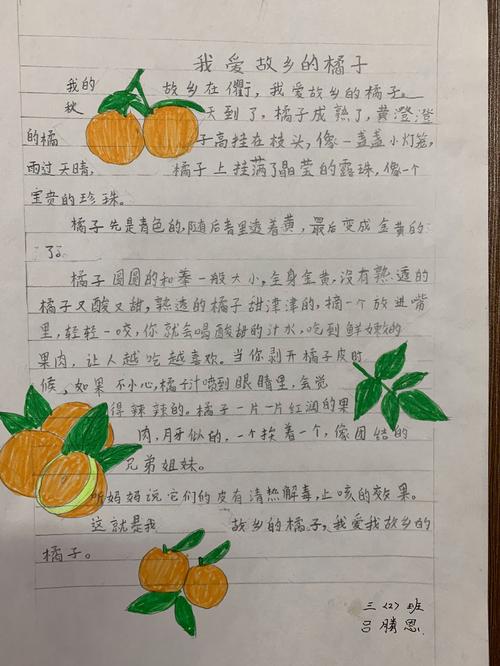 我爱故乡的橘子
我的 故乡在衢，我爱故乡的橘子。
秋 天到了，橘子成熟了，黄澄澄
的橘 子高挂在枝头，像一盏盏小灯笼，
雨过天晴， 橘子上挂满了晶莹的露珠，像一个
宝贵的珍珠。
橘子先是青色的，随后青里透着黄，最后变成金黄的
了。
橘子圆圆的和拳一般大小，全身金黄，没有熟透的
橘子又酸又甜，熟透的橘子甜津津的，摘一个放进嘴
里，轻轻一咬，你就会喝酸甜的汁水，吃到鲜嫩的
果肉，让人越吃越喜欢。当你剥开橘子皮时
候、如果不小心，橘子汁喷到眼睛里，会觉
得辣辣的。橘子一片一片红润的果
肉，月牙似的，一个挨着一个，像团结的
兄弟姐妹。
听妈妈说它们的皮有清热解毒，止咳的效果。
这就是我 故乡的橘子，我爱我故乡的
橘子。
三〈2〉班
吕腾恩